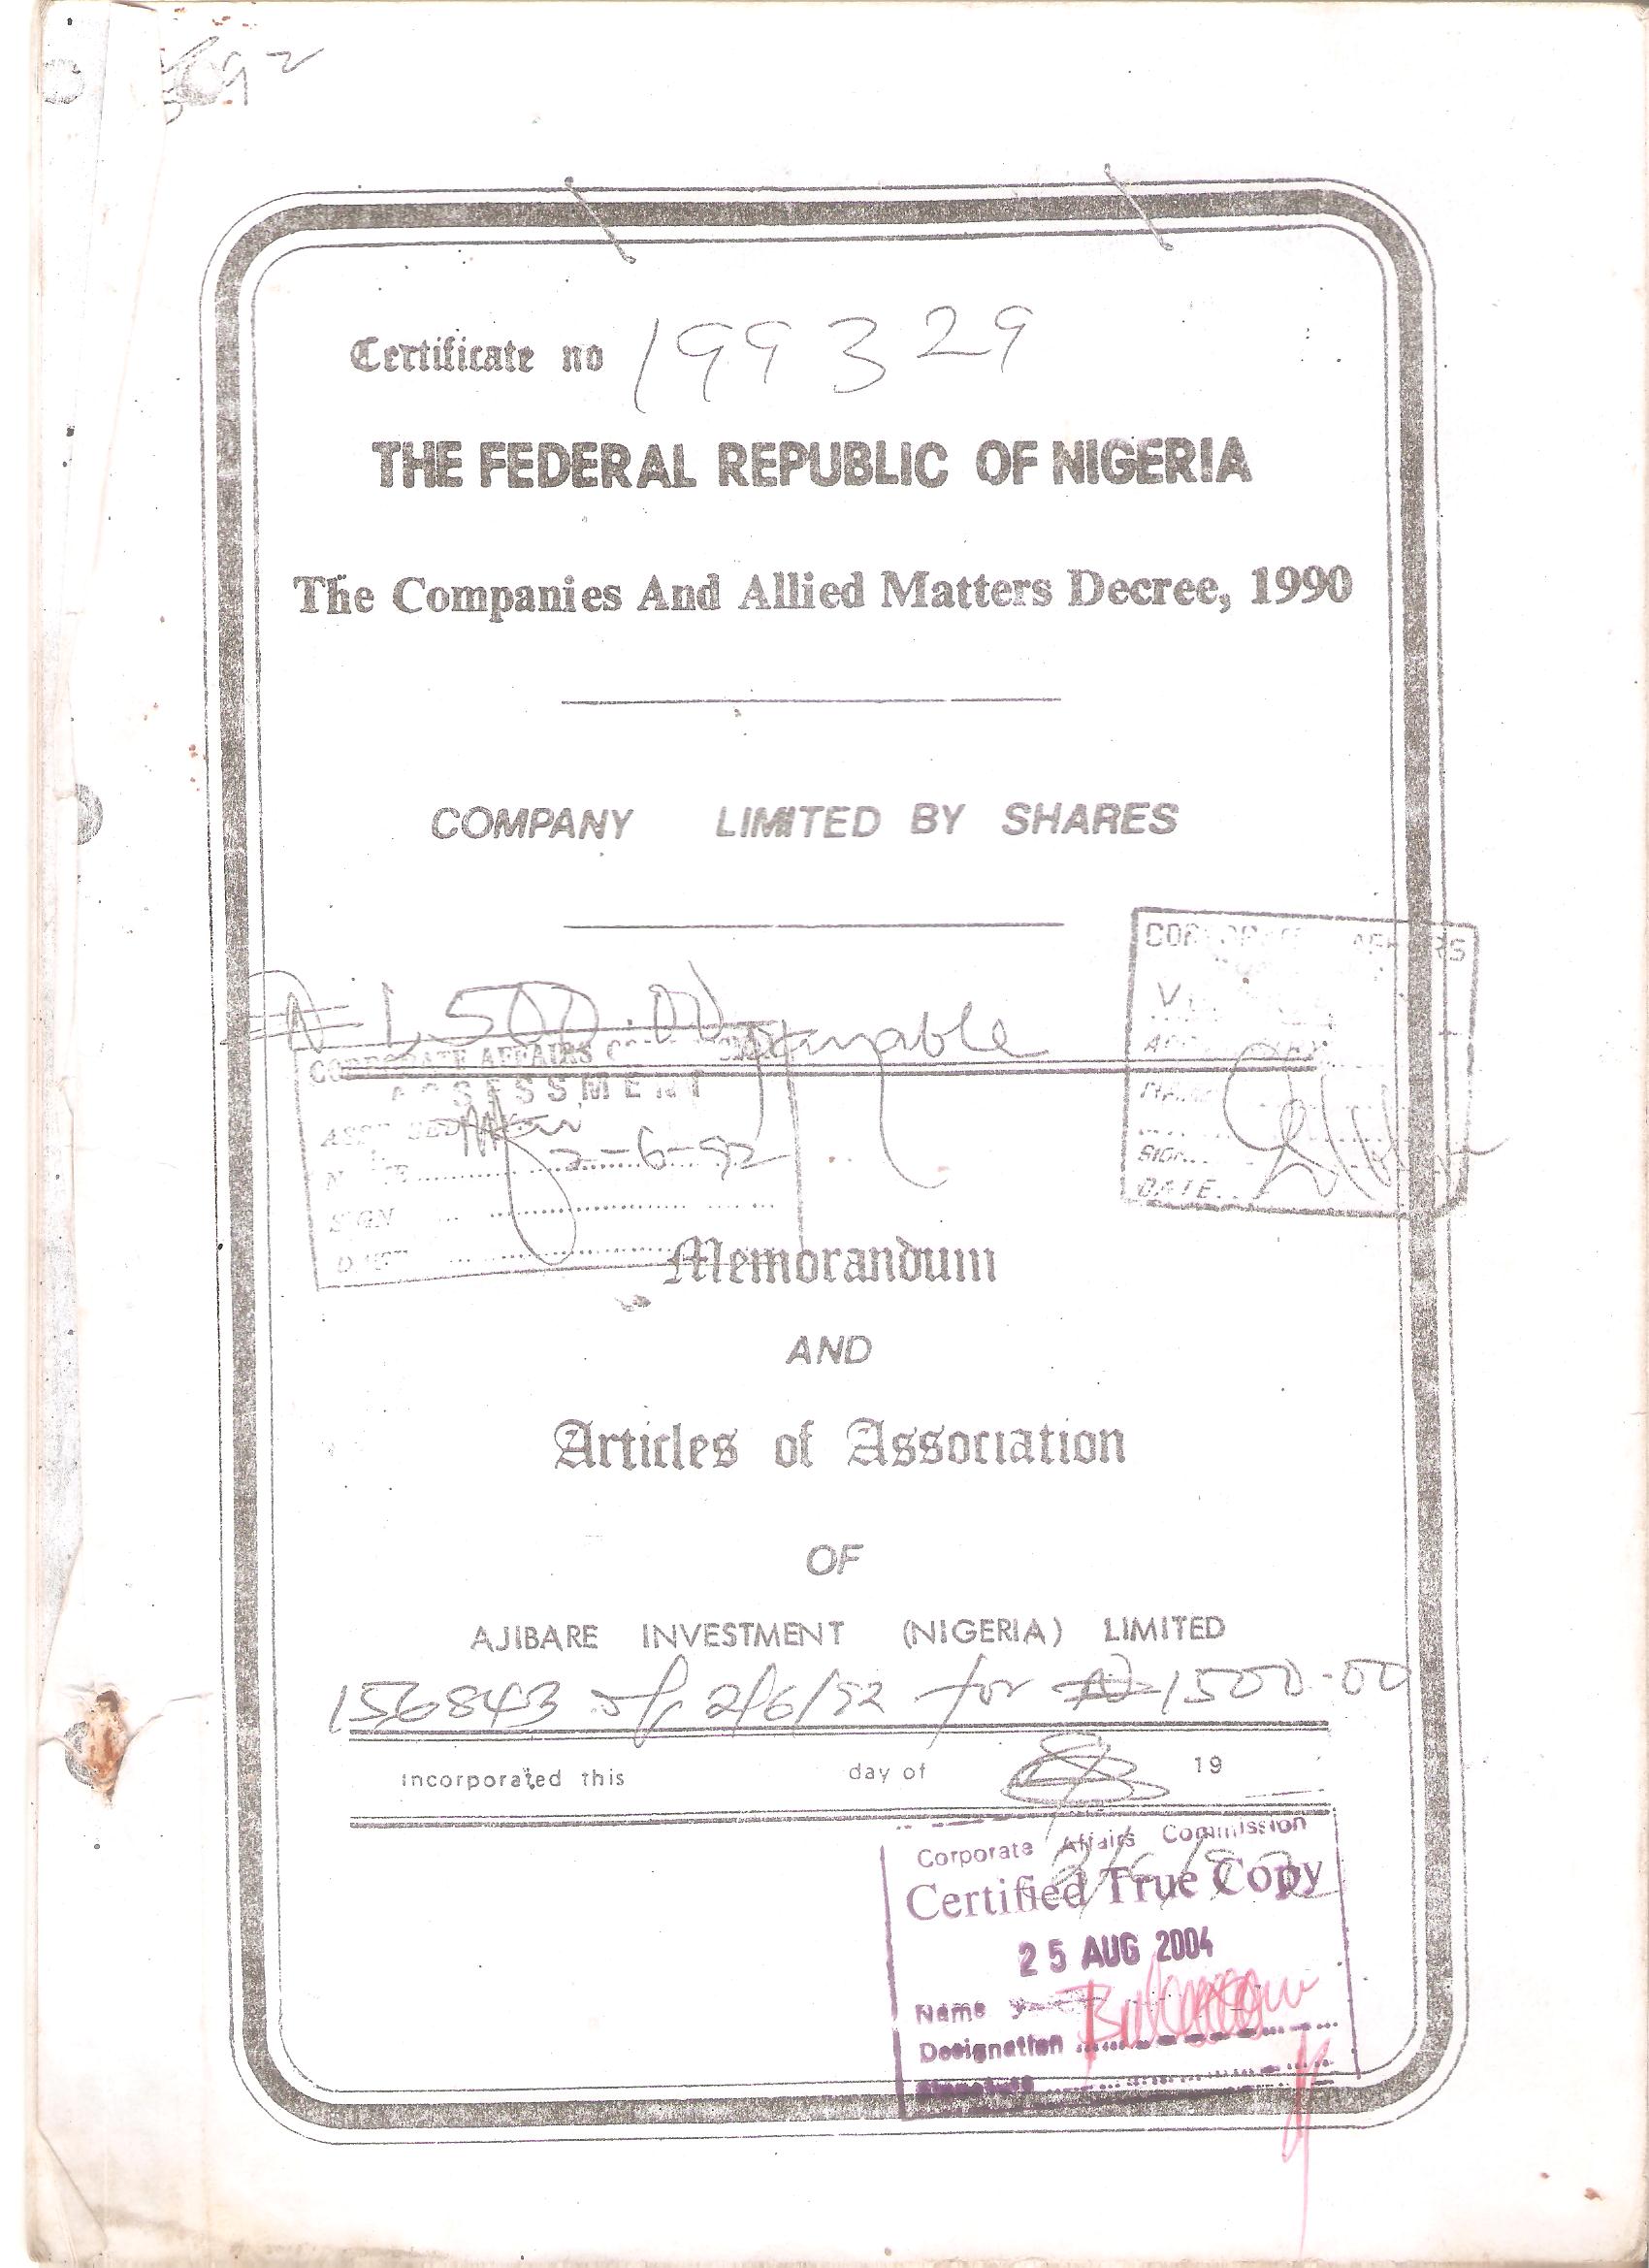 Certificate no 199329
THE FEDERAL REPUBLIC OF NIGERIA
The Companies And Allied Matters Decree, 1990
COMPANY LIMITED BY SHARES
₦ 1,500.00 payable
CORPORATE AFFAIRS
ASSESSMENT
2-6-92
SIGN
SIGN
DATE
Memorandum
AND
Articles of Association
OF
AJIBARE INVESTMENT (NIGERIA) LIMITED
156843 of 2/6/92 for ₦1500-00
Incorporated this day of 19
Corporate Affairs Commission
Certified True Copy
25 AUG 2004
Name
Designation
Signature